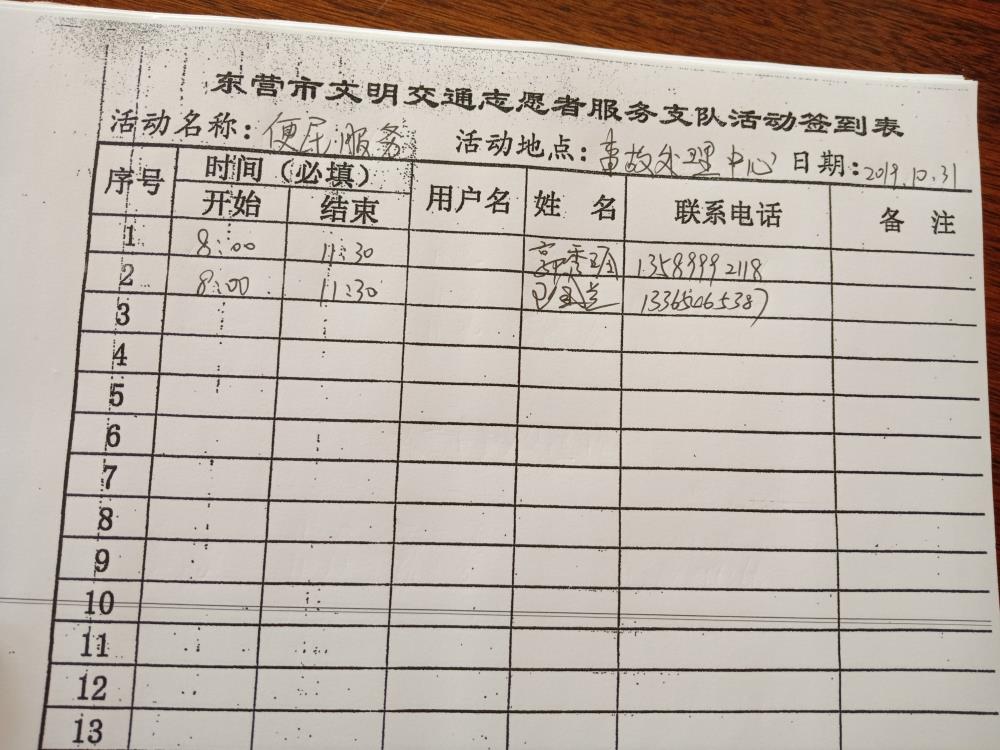 东营市文明交通志愿者服务支队活动签到表
活动名称：便民服务 活动地点：事故处理中心 日期：2019.10.31
序号 时间（必填） 用户名 姓 名 联系电话 备 注
开始 结束
1 8:00 11:30 13589992118
2 8:00 11:30 13365465387
3
4
5
6
7
8
9
10
11
12
13